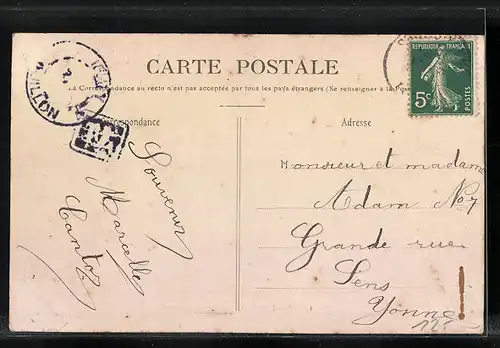 CARTE POSTALE
REPUBLIQUE FRANÇAISE
5c
POSTES
La Correspondance au recto n'est pas acceptée par tous les pays étrangers (Se renseigner à la Poste
Correspondance
Adresse
Souvenir
Marcelle
Monsieur et madame
Adam No 7
Grande rue
Sens
Yonne